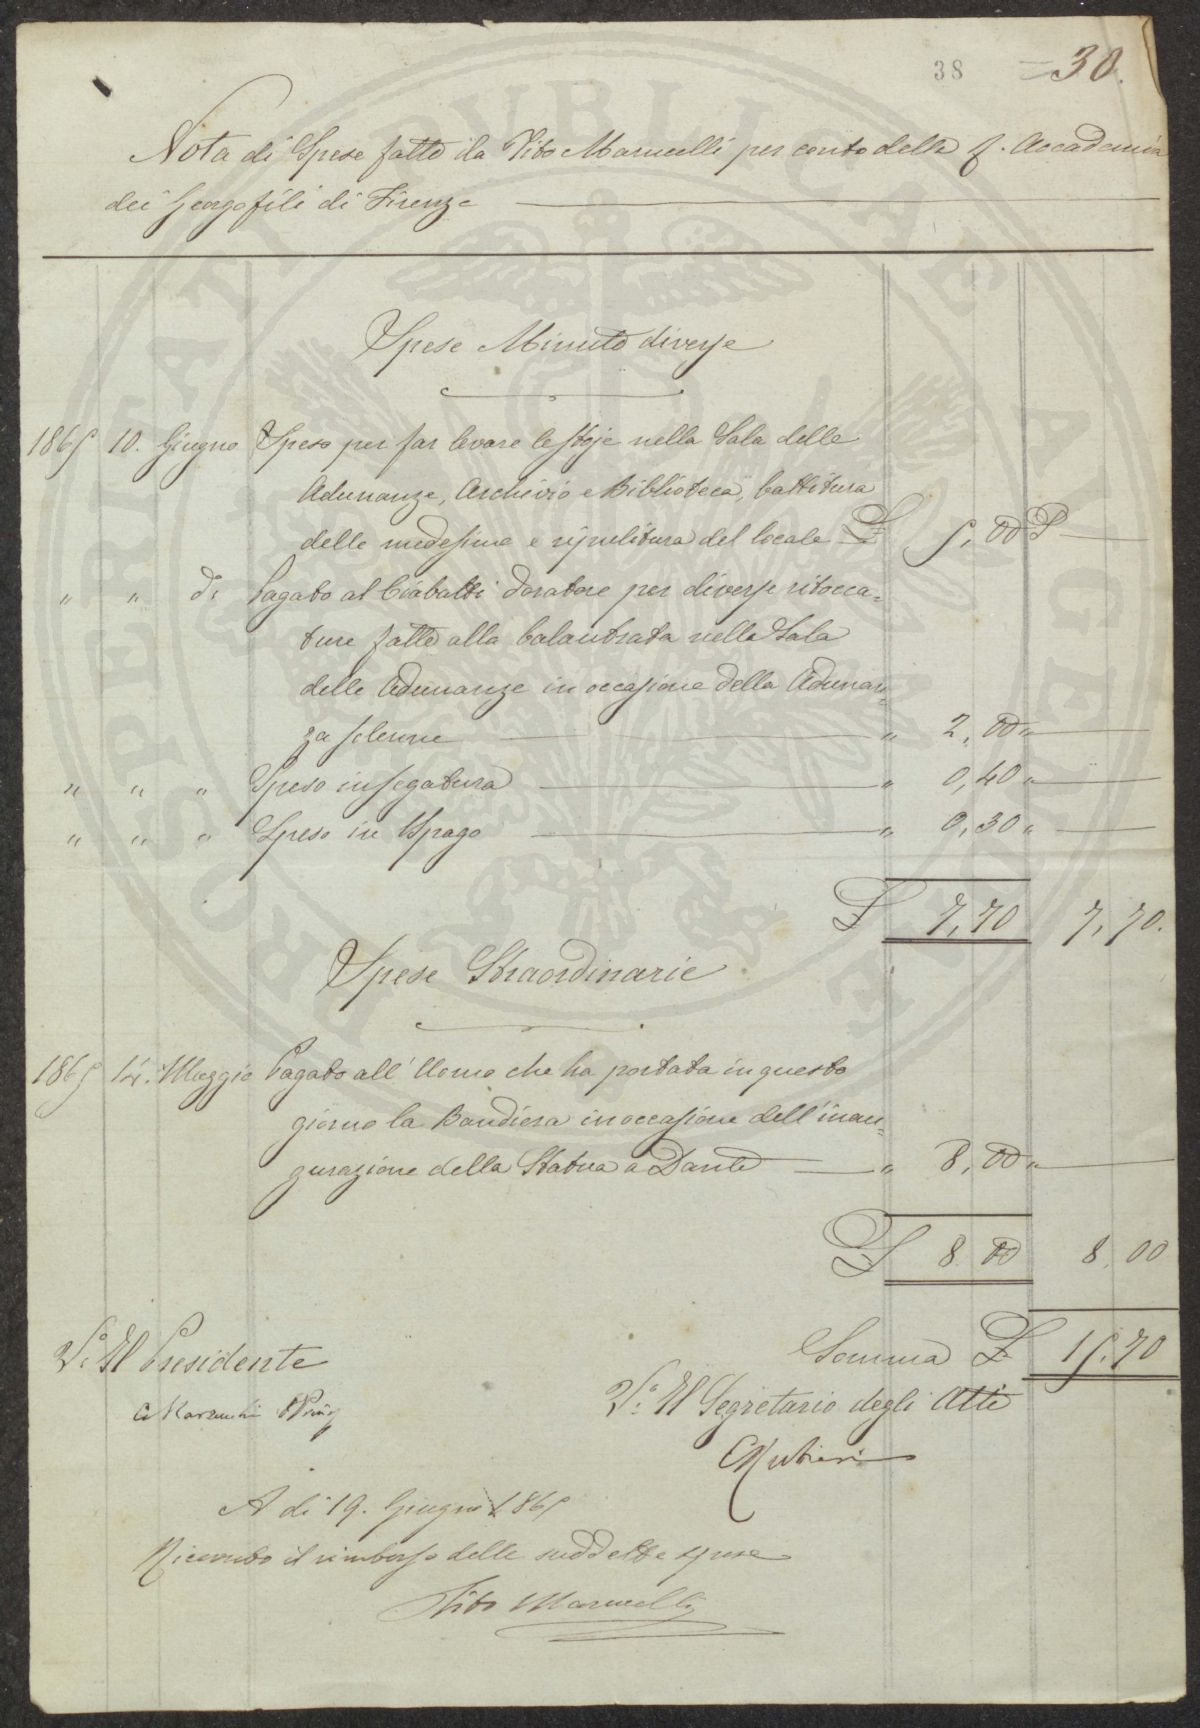 38 30.
Nota di Spese fatte da Tito Marucelli per conto della R. Accademia
dei Georgofili di Firenze
Spese Minute diverse
1865 10. Giugno Speso per far levare le stoje nella Sala delle
Adunanze, Archivio e Biblioteca, battitura
delle medesime e ripulitura del locale £ 5,00 £
" " d.o Pagato al Ciabatti doratore per diverse ritocca=
ture fatte alla balaustrata nella Sala
delle Adunanze in occasione della Adunan=
za solenne " 2,00 "
" " " Speso in segatura " 0,40 "
" " " Speso in Spago " 0,30 "
£ 7,70 7,70.
Spese Straordinarie
1865 14. Maggio Pagato all'Uomo che ha portata in questo
giorno la Bandiera in occasione dell'inau=
gurazione della Statua a Dante " 8,00 "
£ 8 00 8,00
Somma £ 15.70
V.o Il Presidente
V.o Il Segretario degli Atti
A di 19. Giugno 1865
Ricevuto il rimborso delle suddette spese
Tito Marucelli
PROSPERITATI PUBLICAE AUGENDAE